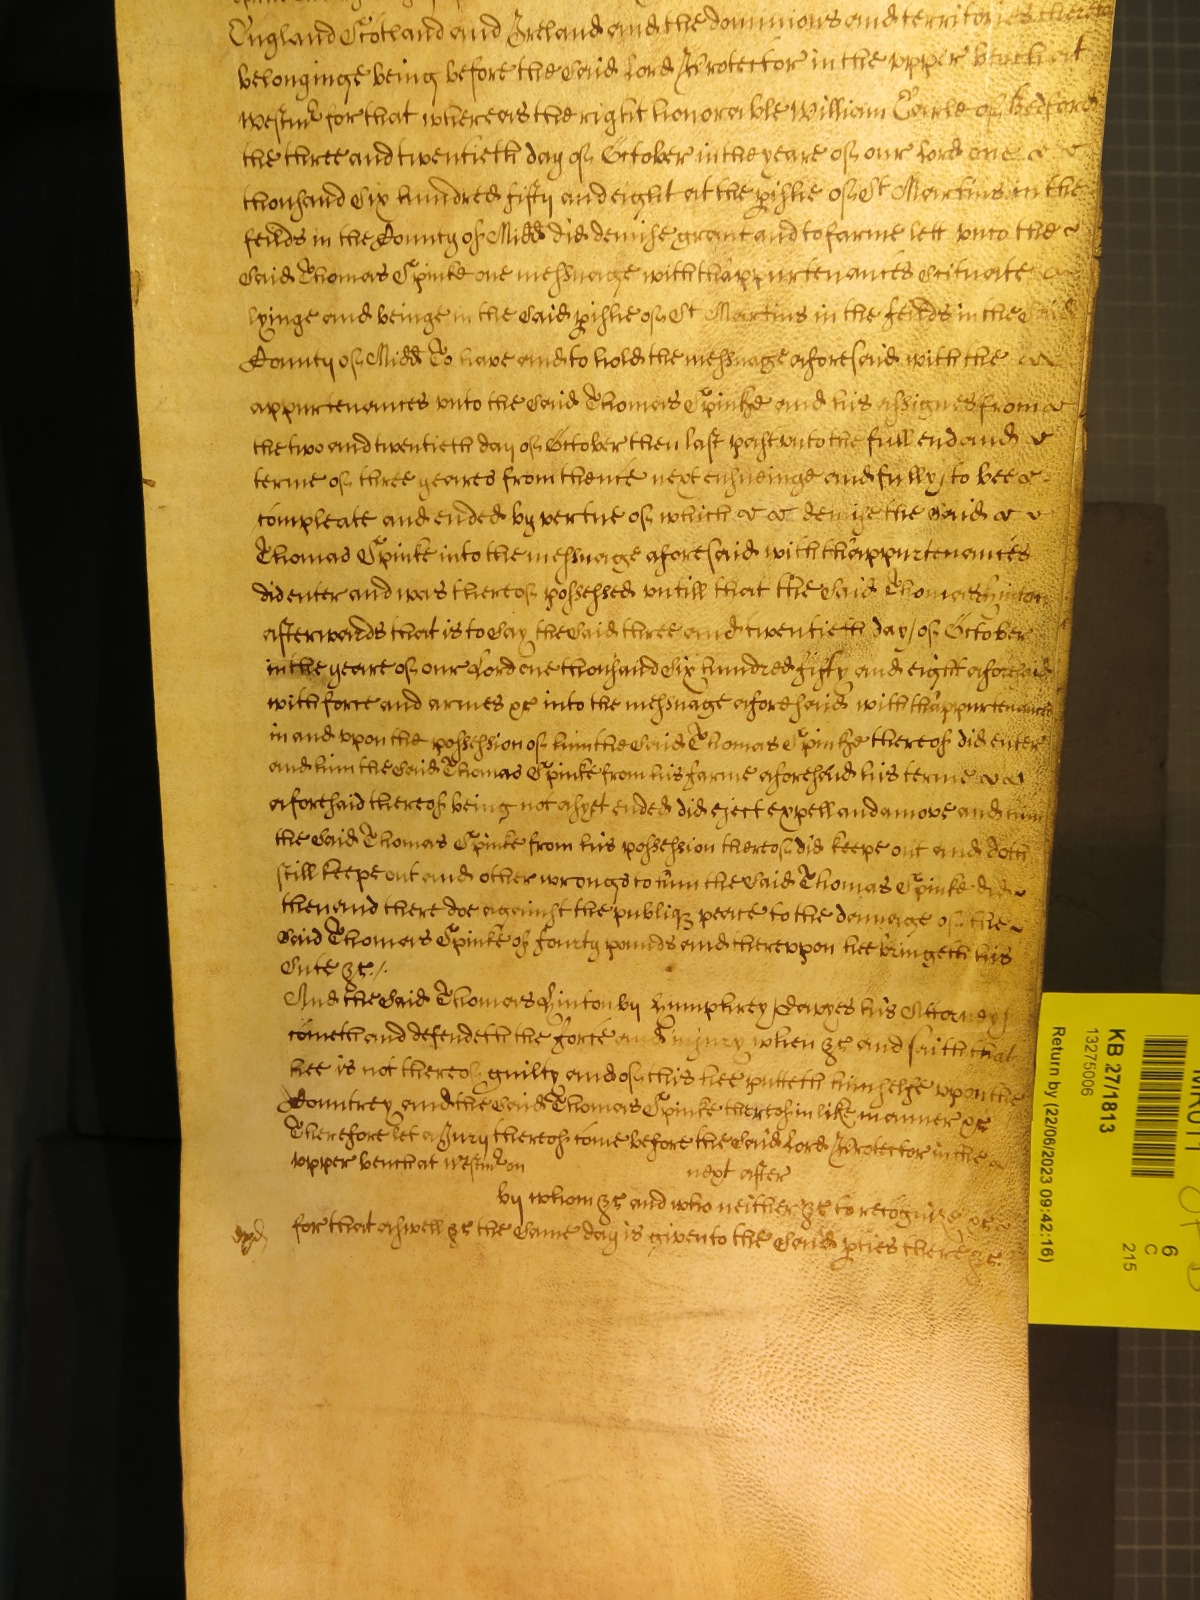 England Scotland and Ireland and the dominions and territories thereto
belonginge being before the said Lord Protector in the upper bench at
Westmr for that whereas the right honorable William Earle of Bedford
the three and twentieth day of October in the yeare of our Lord one
thousand six hundred fifty and eight at the pishe of St Martins in the
feilds in the County of Midd did demise grant and to farme lett unto the
said Thomas Spinke one messuage with thappurtenances scituate
lyinge and beinge in the said pishe of St Martins in the feilds in the said
County of Midd To have and to hold the messuage aforesaid with the
appurtenances unto the said Thomas Spinke and his assignes from
the two and twentieth day of October then last past unto the full end and
terme of three yeares from thence next ensueinge and fully to bee
compleate and ended by vertue of which demise the said
Thomas Spinke into the messuage aforesaid with thappurtenances
did enter and was thereof possessed untill that the said Thomas Linton
afterwards that is to say the said three and twentieth day of October
in the yeare of our Lord one thousand six hundred fifty and eight aforesaid
with force and armes &c into the messuage aforesaid with thappurtenances
in and upon the possession of him the said Thomas Spinke thereof did enter
and him the said Thomas Spinke from his farme aforesaid his terme
aforesaid thereof being not as yet ended did eject expell and amove and him
the said Thomas Spinke from his possession thereof did keepe out and doth
still keepe out and other wrongs to him the said Thomas Spinke did
then and there doe against the publiq peace to the damage of the
said Thomas Spinke of fourty pounds and thereupon hee bringeth his
sute &c./.
And the said Thomas Linton by Humphrey Davyes his Attorney
cometh and defendeth the force and injury when &c and saith that
hee is not thereof guilty and of this hee putteth himselfe upon the
Countrey and the said Thomas Spinke thereof in like manner &c
Therefore let a Jury thereof come before the said Lord Protector in the
upper bench at Westmr on next after
by whom &c and who neither &c to recognize &c
for that aswell &c the same day is given to the said pties there &c.
KB 27/1813
13275006
Return by (22/06/2023 09:42:16)
6
C
215